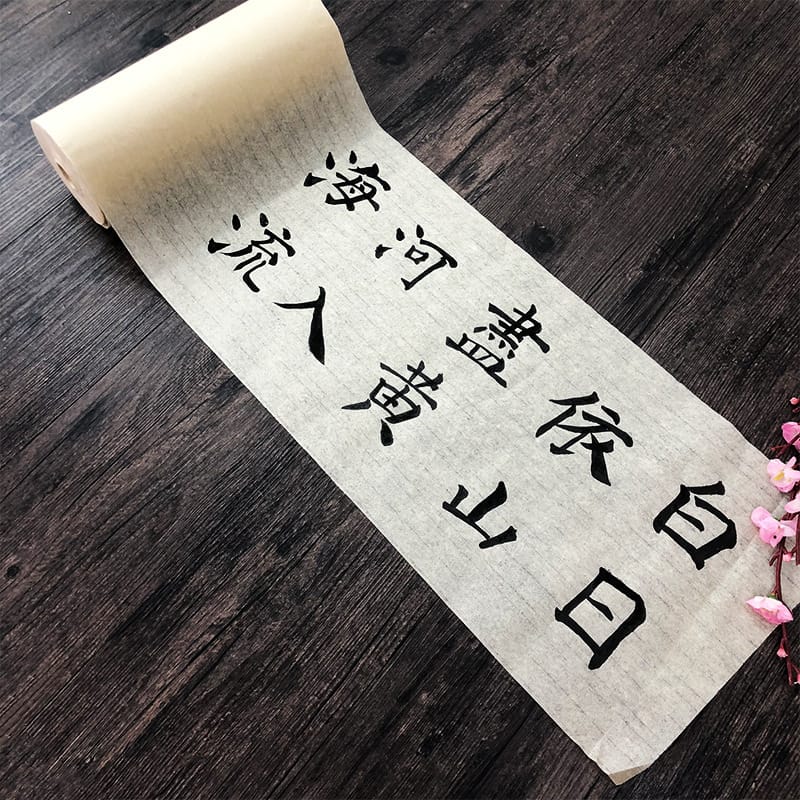 白日
依山
盡黄
河入
海流